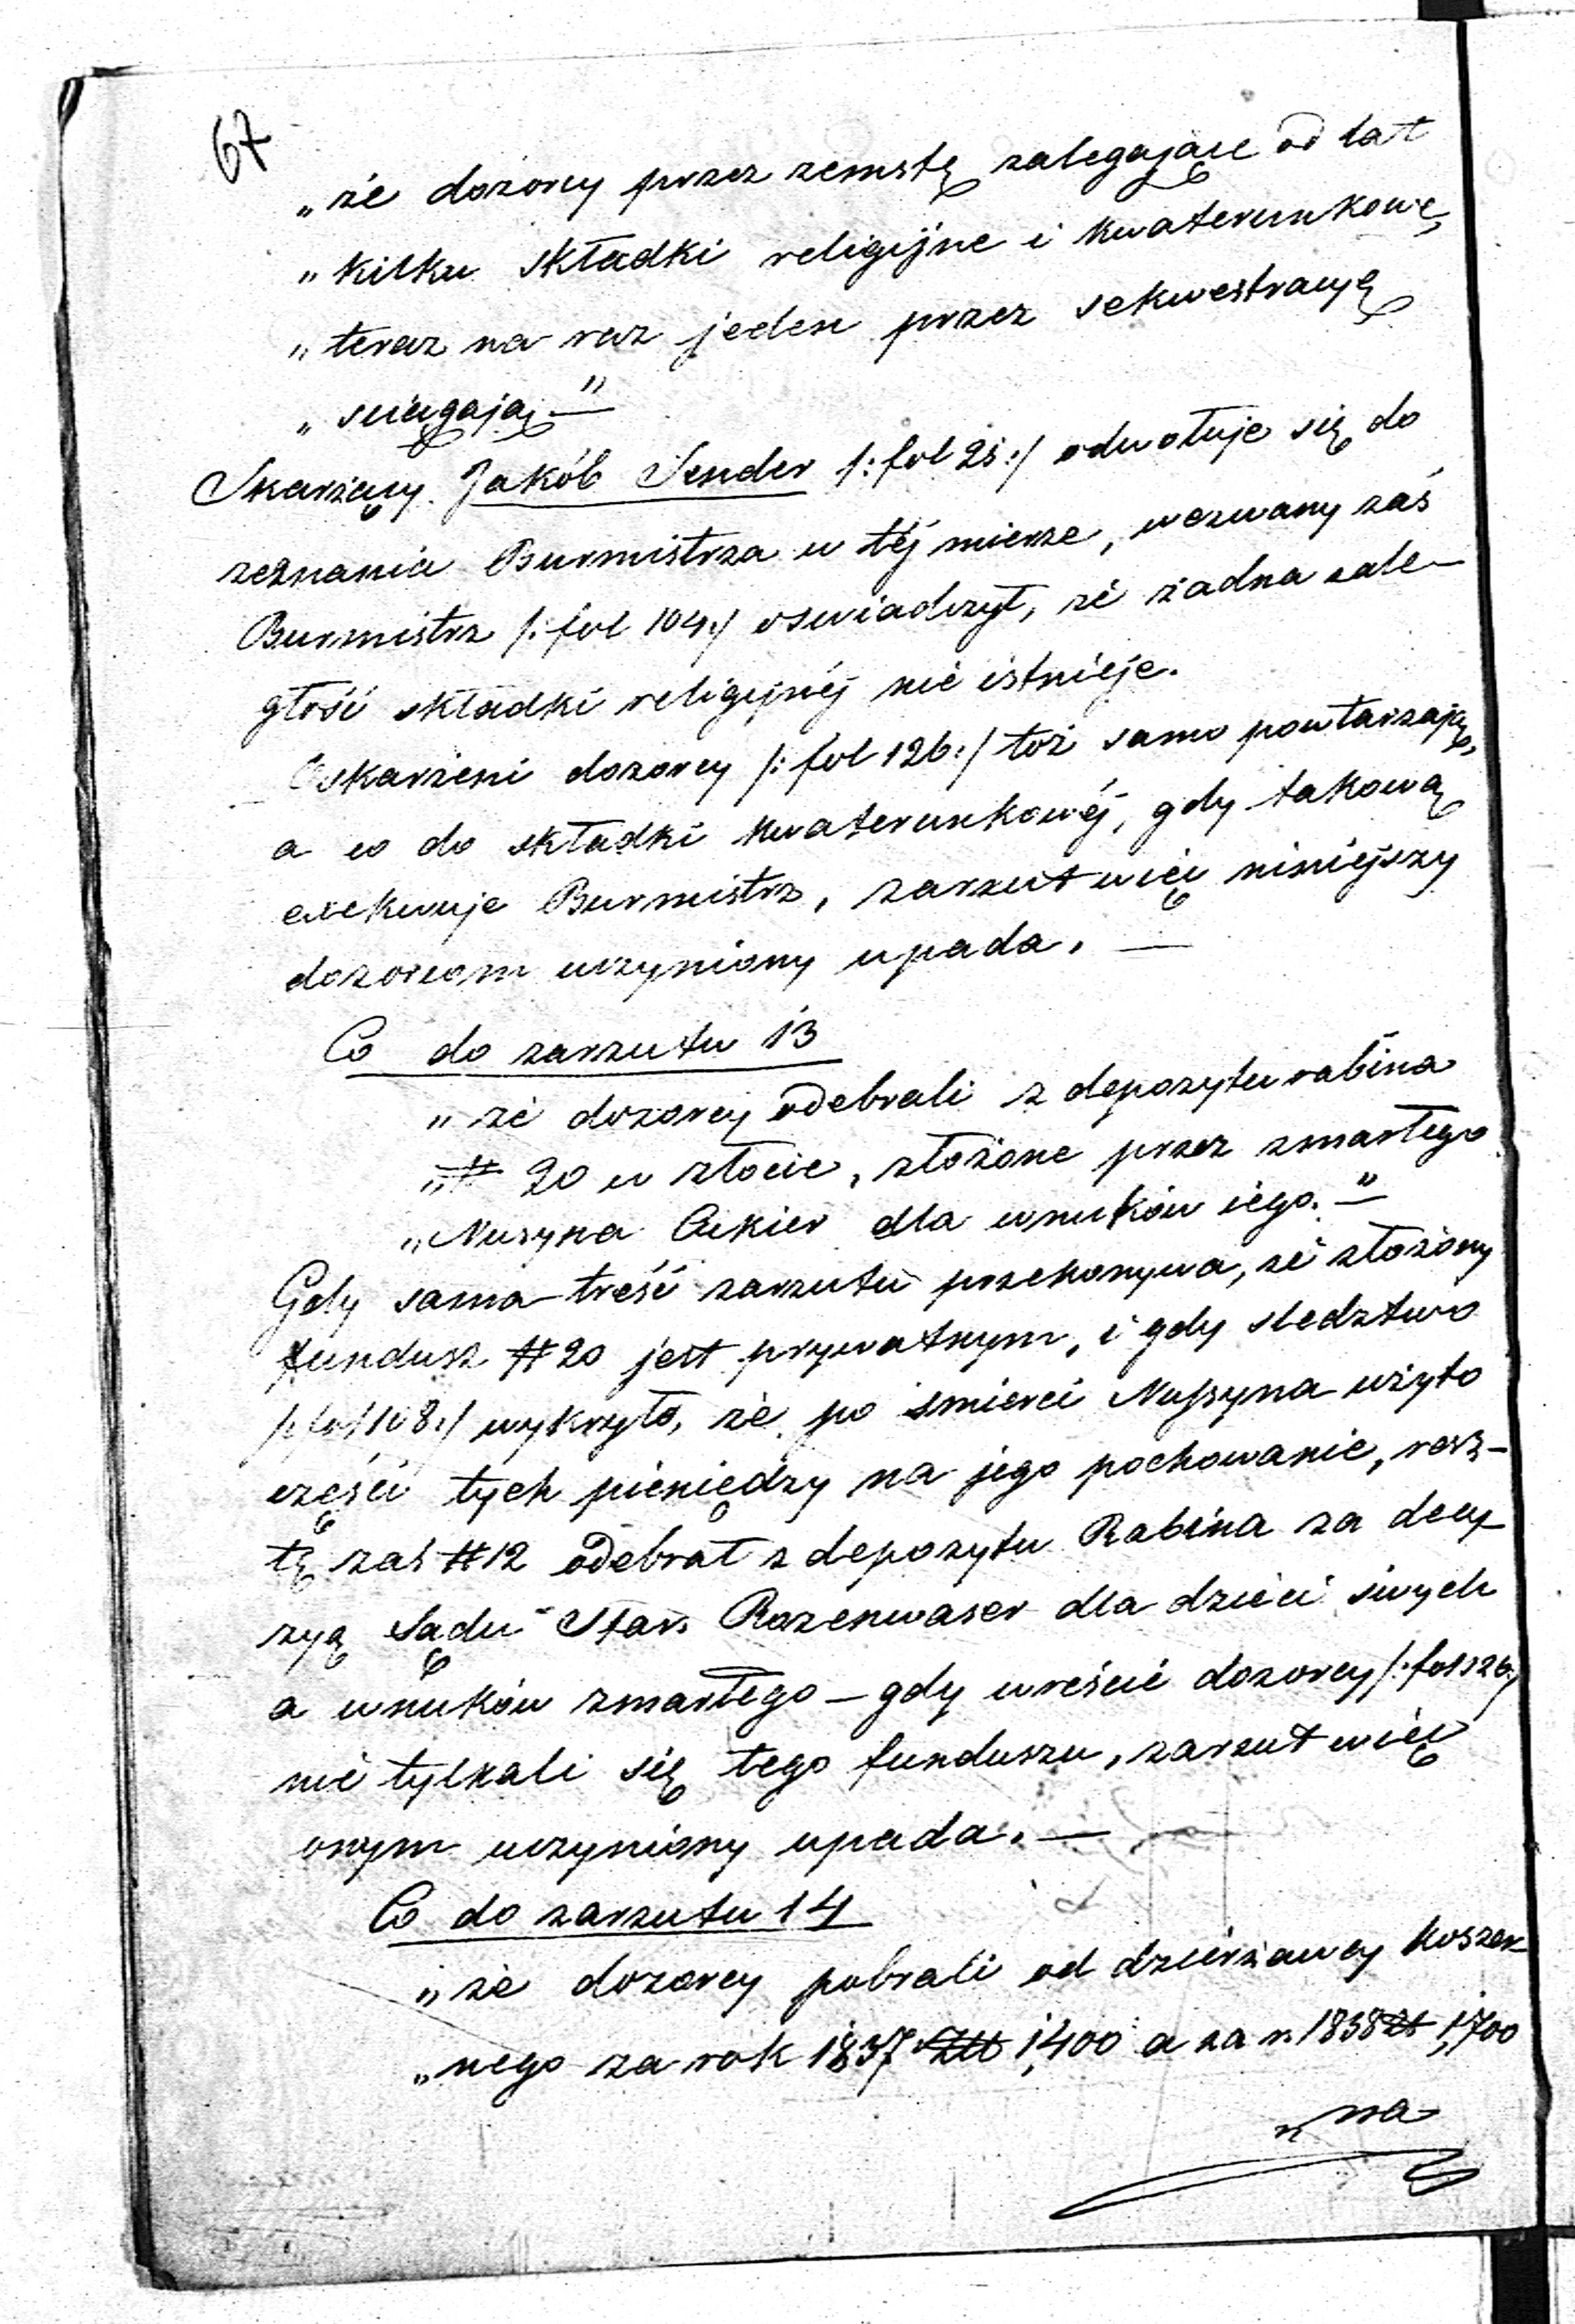 67
„że dozorcy przez zemstę zalegające od lat
„kilku składki religijne i kwaterunkowe,
„teraz na raz jeden przez sekwestracyę
„sciągają.—"
Skarżący Jakób Sender /:fol 25:/ odwołuje się do
zeznania Burmistrza w téj mierze, wezwany zaś
Burmistrz /:fol 104:/ oswiadczył, że żadna zale-
głość składki religijnéj nie istnieje.
Oskarżeni dozorcy /:fol 126:/ toż samo powtarzają,
a co do składki kwaterunkowéj, gdy takową
exekwuje Burmistrz, zarzut więc niniejszy
dozorcom uczyniony upada. —
Co do zarzutu 13
„że dozorcy odebrali z depozytu rabina
„# 20 w złocie, złożone przez zmarłego
„Nusyna Cukier dla wnuków iego.—"
Gdy sama treść zarzutu przekonywa, że złożony
fundusz #20 jest prywatnym, i gdy sledztwo
/:fol 108:/ wykryło, że po smierci Nussyna użyto
części tych pieniędzy na jego pochowanie, resz-
tę zaś #12 odebrał z depozytu Rabina za decy-
zyą Sądu Stars Rozenwaser dla dzieci swych
a wnuków zmarłego — gdy wreście dozorcy /:fol 126:/
nie tylkali się tego funduszu, zarzut więc
onym uczyniony upada. —
Co do zarzutu 14
„że dozorcy pobrali od dzierżawcy koszer-
„nego za rok 1837 Zł 1,400 a za r. 1838 zł 1,700
„na